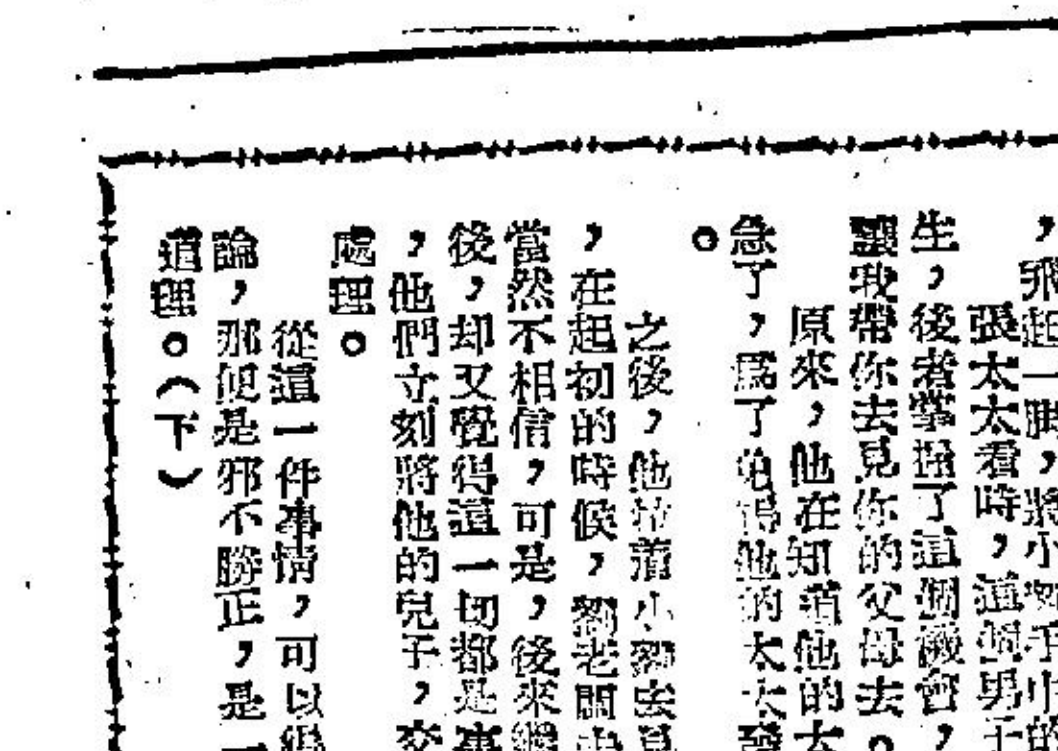 ，飛起一脚，將小劉手中的
張太太看時，這個男子
生，後者掌握了這個機會，
讓我帶你去見你的父母去。
原來，他在知道他的太
急了，爲了他的太太
。
之後，他小劉去見
，在起初的時候，劉老闆
當然不相信，可是，後來
後，却又覺得這一切都是事
，他們立刻將他的兒子，交
處理。
從這一件事情，可以得
論，那便是邪不勝正，是一
道理。（下）